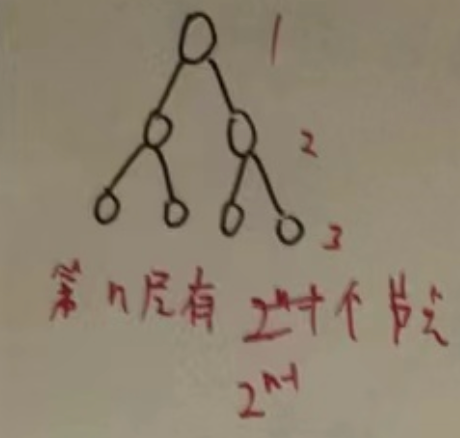 1
2
3
第n层有 2^n-1 个节点
2^n-1